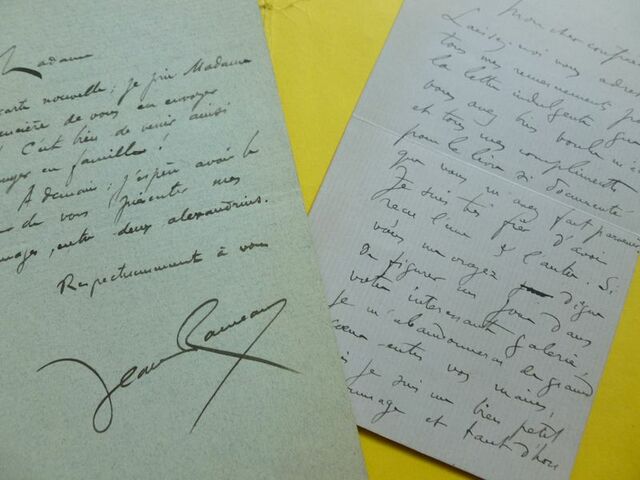 Madame
carte nouvelle; je prie Madame
de vous en envoyer
C'est bien de venir ainsi
en famille!
A demain; j'espère avoir le
de vous présenter mes
mages, entre deux alexandrins.
Respectueusement à vous
Jean Rameau
Mon cher confrè
Laissez-moi vous adres
tous mes remerciements po
la lettre indulgente que
vous avez bien voulu m'
et tous mes compliments
pour le livre si documenté
que vous m'avez fait parveni
Je suis très fier d'avoir
reçu l'une & l'autre. Si
vous me croyez digne
de figurer un jour dans
votre intéressante galerie,
je m'abandonnerai de grand
cœur entre vos mains,
je suis un bien petit
et tant d'hon